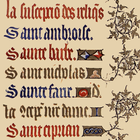 la susception des reliqs
Saint ambroise.
Sainte barbe.
Saint nicholas
Sainte fare.
la concepcion nre dame
Saint ciprian